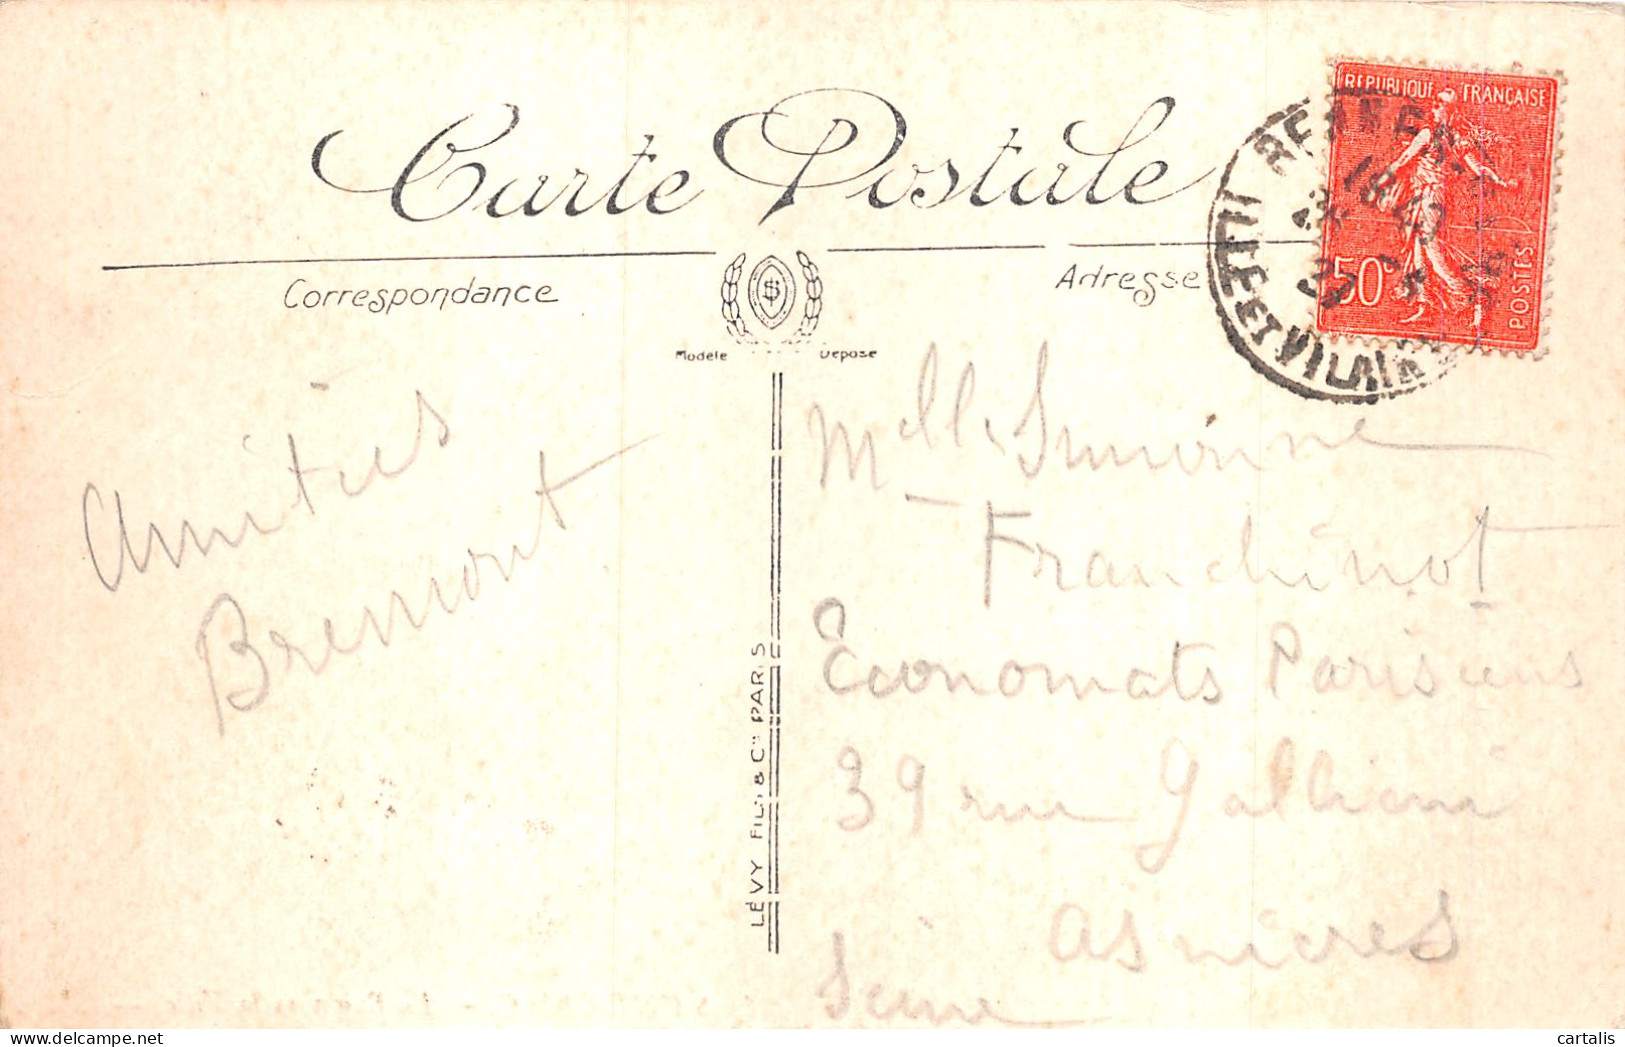 Carte Postale
Correspondance
Adresse
Modèle Déposé
REPUBLIQUE FRANÇAISE
50c
POSTES
ILLE ET VILAINE
Amitiés
Bremont
Melle Simonne
Franchinot
Économats Parisiens
39 rue Gallieni
Asnières
Seine
LÉVY FILS & Cie PARIS
cartalis